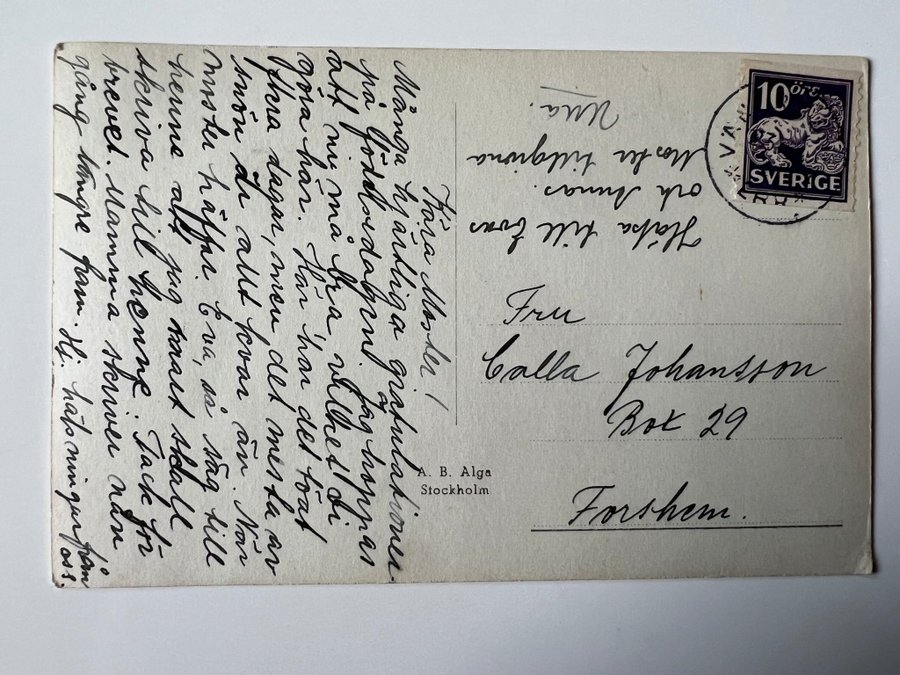 Kära Moster!
Många hjärtliga gratulationer
på födelsedagen! Jag hoppas
att ni må bra, vilket vi
göra här. Här har det töat
flera dagar, men det mesta av
snön är allt kvar än. När
moster träffar Eva, så säg till
henne att jag snart skall
skriva till henne. Tack för
brevet. Mamma skriver nån
gång längre fram. Hj. hälsningar från
oss.
Hälsa till Evas
och Annas.
Moster tillgivna
Ulla.
10 öre
SVERIGE
Fru
Calla Johansson
Box 29
Forshem.
A. B. Alga
Stockholm